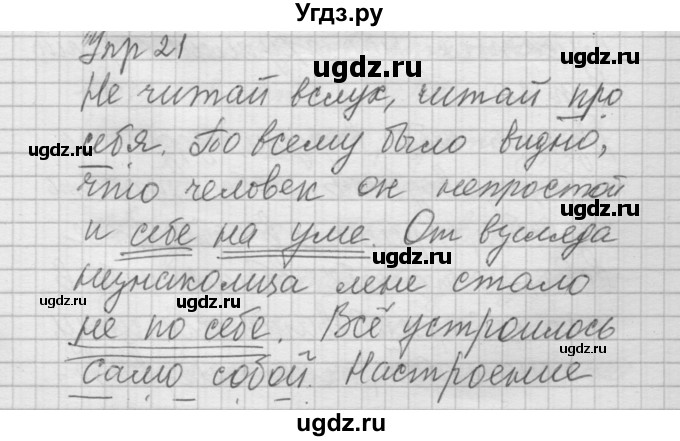 Угдз.ру
Упр 21
Не читай вслух, читай про
себя. По всему было видно,
что человек он непростой
и себе на уме. От взгляда
незнакомца мне стало
не по себе. Всё устроилось
само собой. Настроение
ugdz.ru
ugdz.ru
ugdz.ru
ugdz.ru
ugdz.ru
ugdz.ru
ugdz.ru
ugdz.ru
ugdz.ru
ugdz.ru